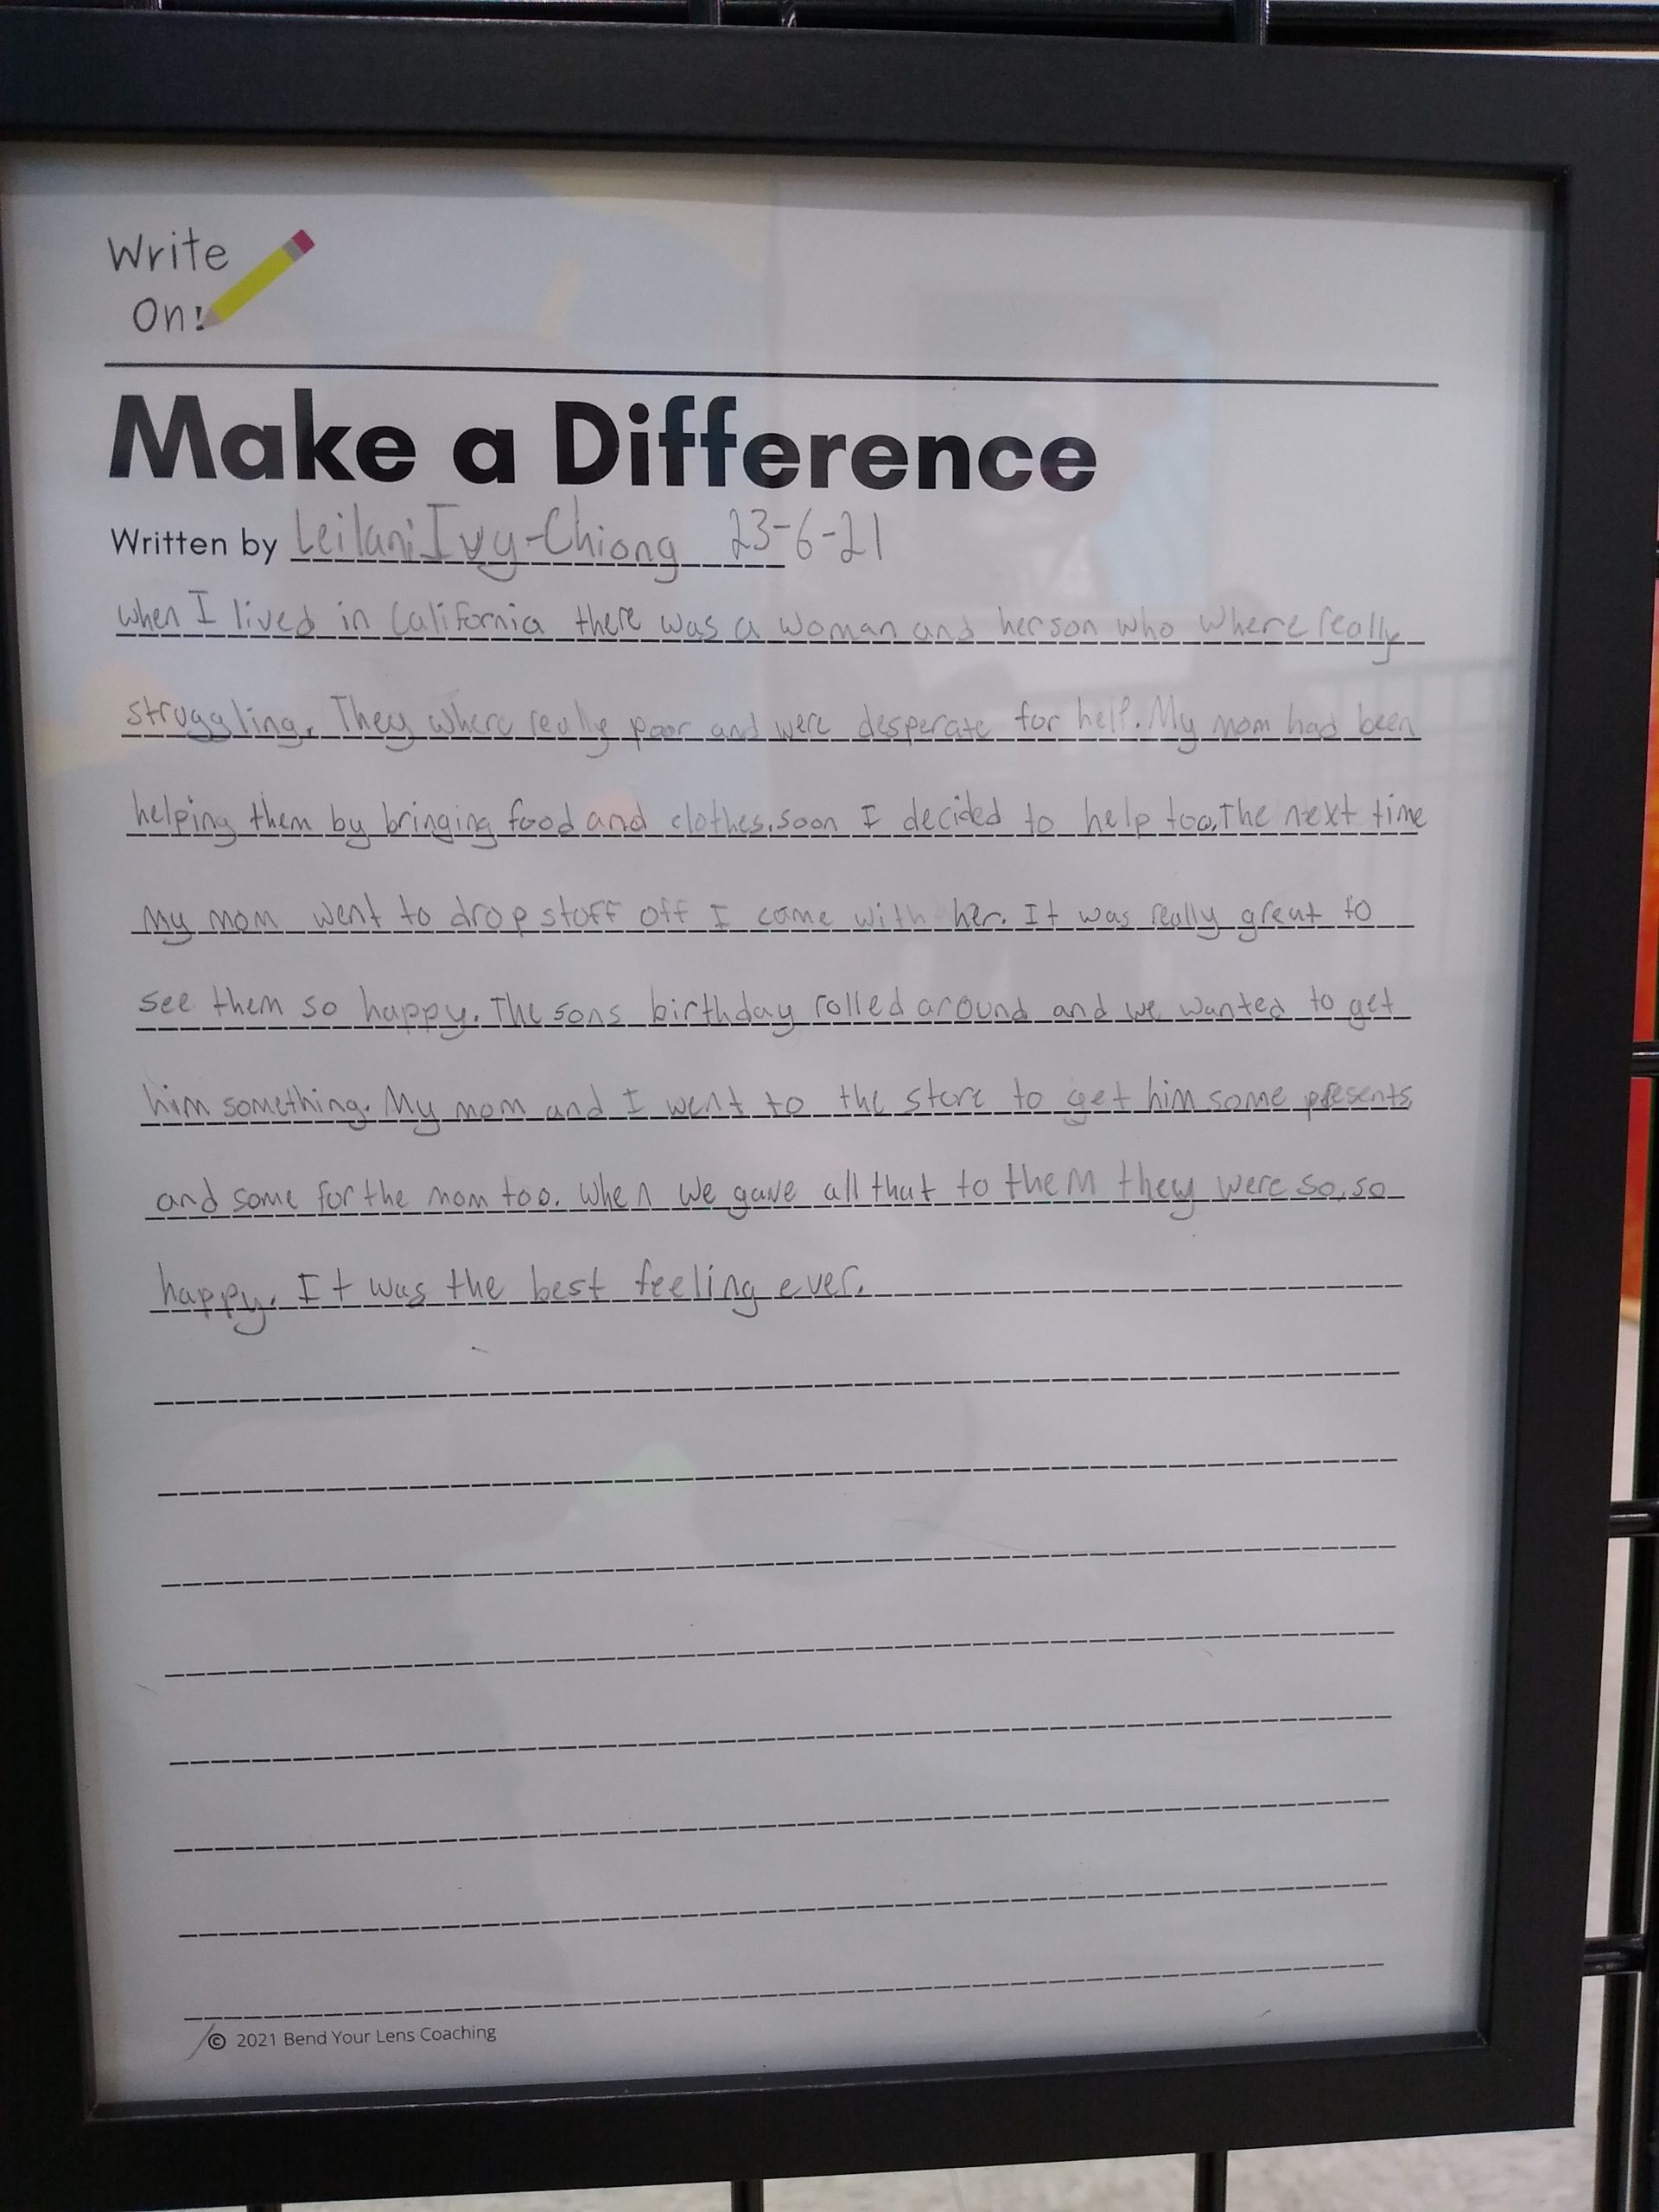 Write
On!
Make a Difference
Written by Leilani Ivy-Chiong 23-6-21
when I lived in California there was a woman and her son who where really
struggling. They where really poor and were desperate for help. My mom had been
helping them by bringing food and clothes. soon I decided to help too. The next time
my mom went to drop stuff off I came with her. It was really great to
see them so happy. The sons birthday rolled around and we wanted to get
him something. My mom and I went to the store to get him some presents
and some for the mom too. When we gave all that to them they were so, so
happy. It was the best feeling ever.
© 2021 Bend Your Lens Coaching